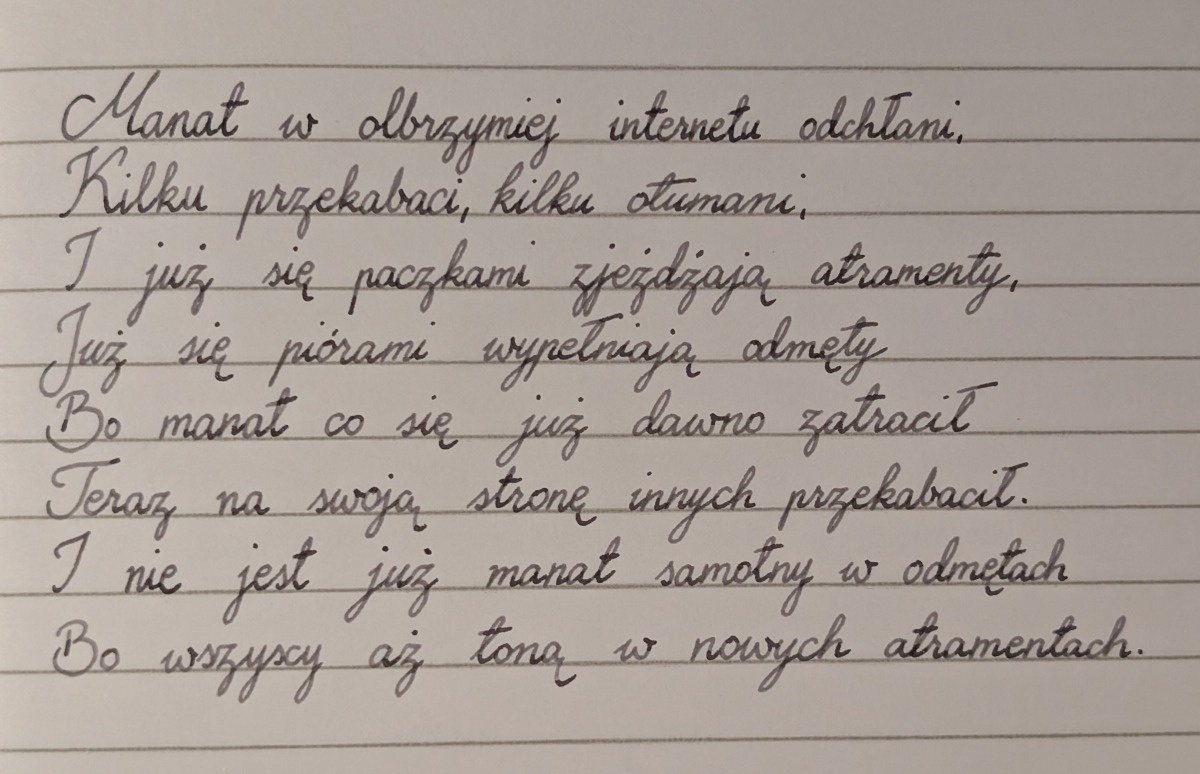 Manat w olbrzymiej internetu odchłani,
Kilku przekabaci, kilku otumani,
I już się paczkami zjeżdżają atramenty,
Już się piórami wypełniają odmęty
Bo manat co się już dawno zatracił
Teraz na swoją stronę innych przekabacił.
I nie jest już manat samotny w odmętach
Bo wszyscy aż toną w nowych atramentach.